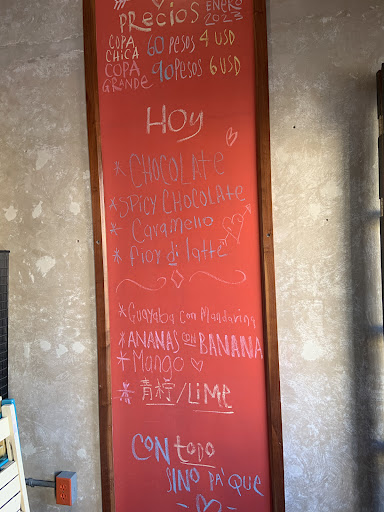 PRECIOS ENERO 2023
COPA CHICA 60 PESOS 4 USD
COPA GRANDE 90 PESOS 6 USD
HOY
* CHOCOLATE
* SPICY CHOCOLATE
* Caramello
* fior di latte
* Guayaba con Mandarina
* ANANAS CON BANANA
* Mango
* 青柠/LiMe
CON todo
SINO PA' QUE